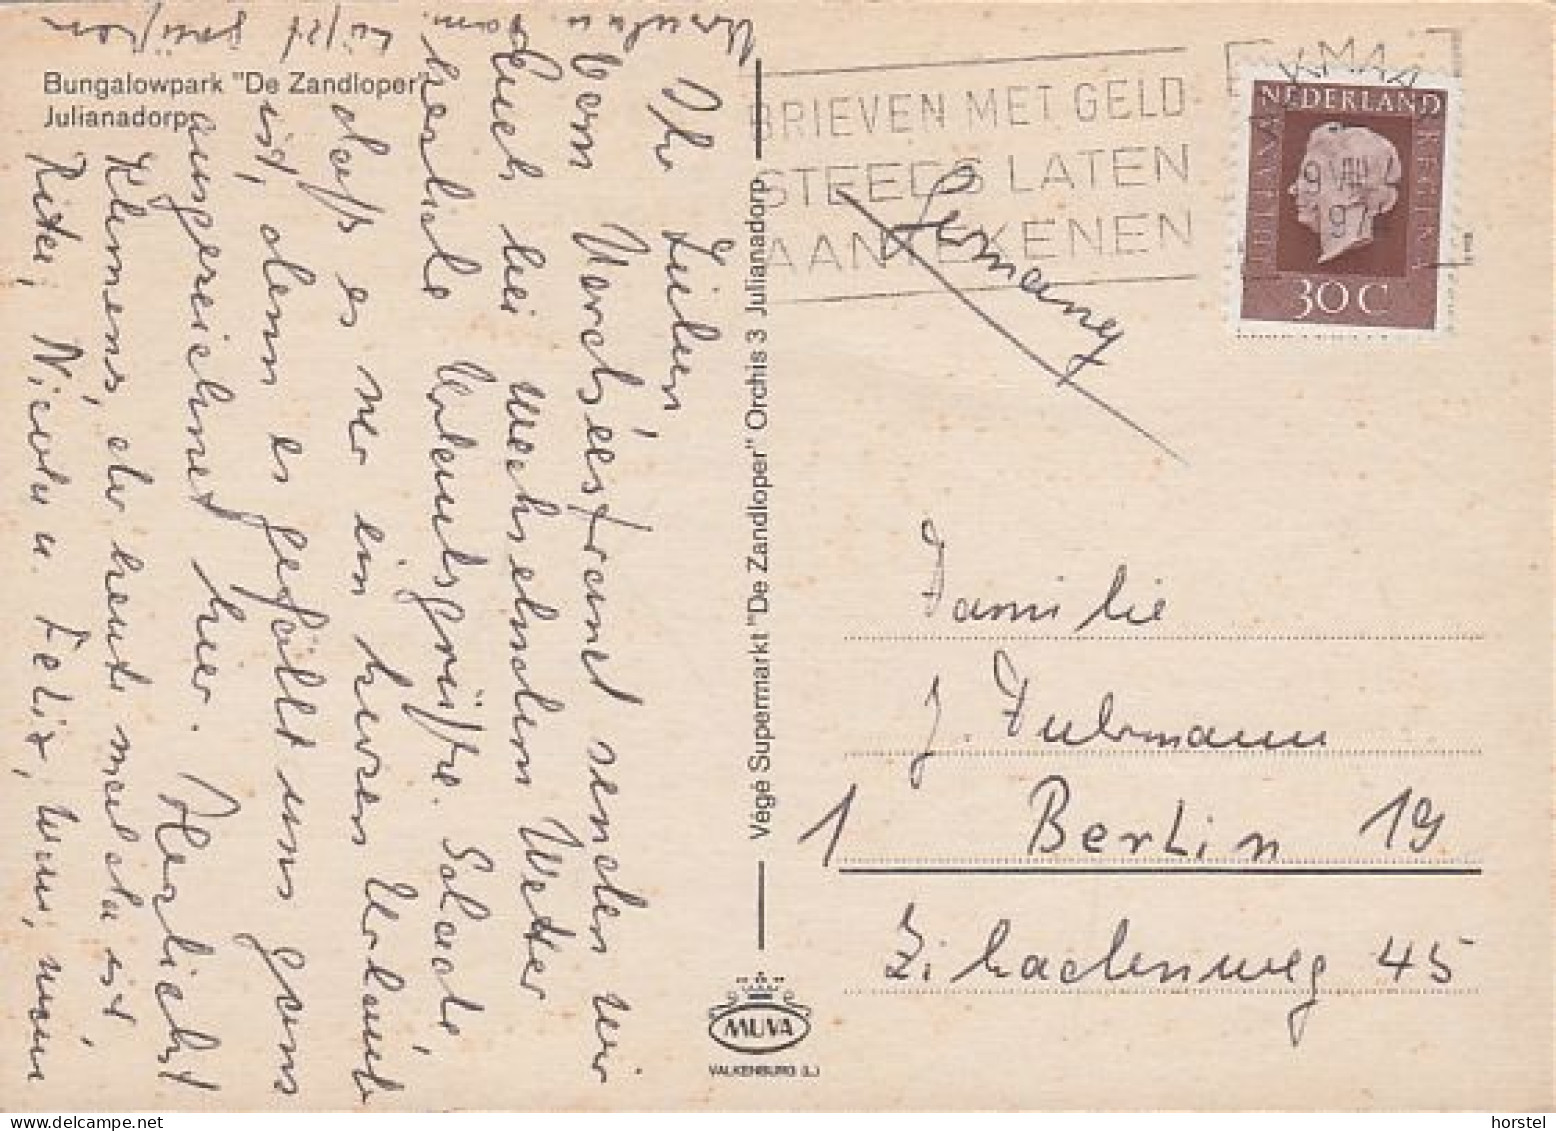 Bungalowpark "De Zandloper"
Julianadorp
Ihr Lieben,
vom Nordseestrand senden wir
Euch bei wechselndem Wetter
herzliche Urlaubsgrüße. Schade,
daß es nur ein kurzer Urlaub
ist, denn es gefällt uns ganz
ausgezeichnet hier. Herzlichst
Klemens, der heute mal da ist,
Nicola u. Felix,
Végé Supermarkt "De Zandloper" Orchis 3 Julianadorp
MUVA
VALKENBURG (L.)
BRIEVEN MET GELD
STEEDS LATEN
AANTEKENEN
NEDERLAND
JULIANA REGINA
30 C
Germany
Familie
J. Fuhrmann
1 Berlin 19
Zikadenweg 45
horstel